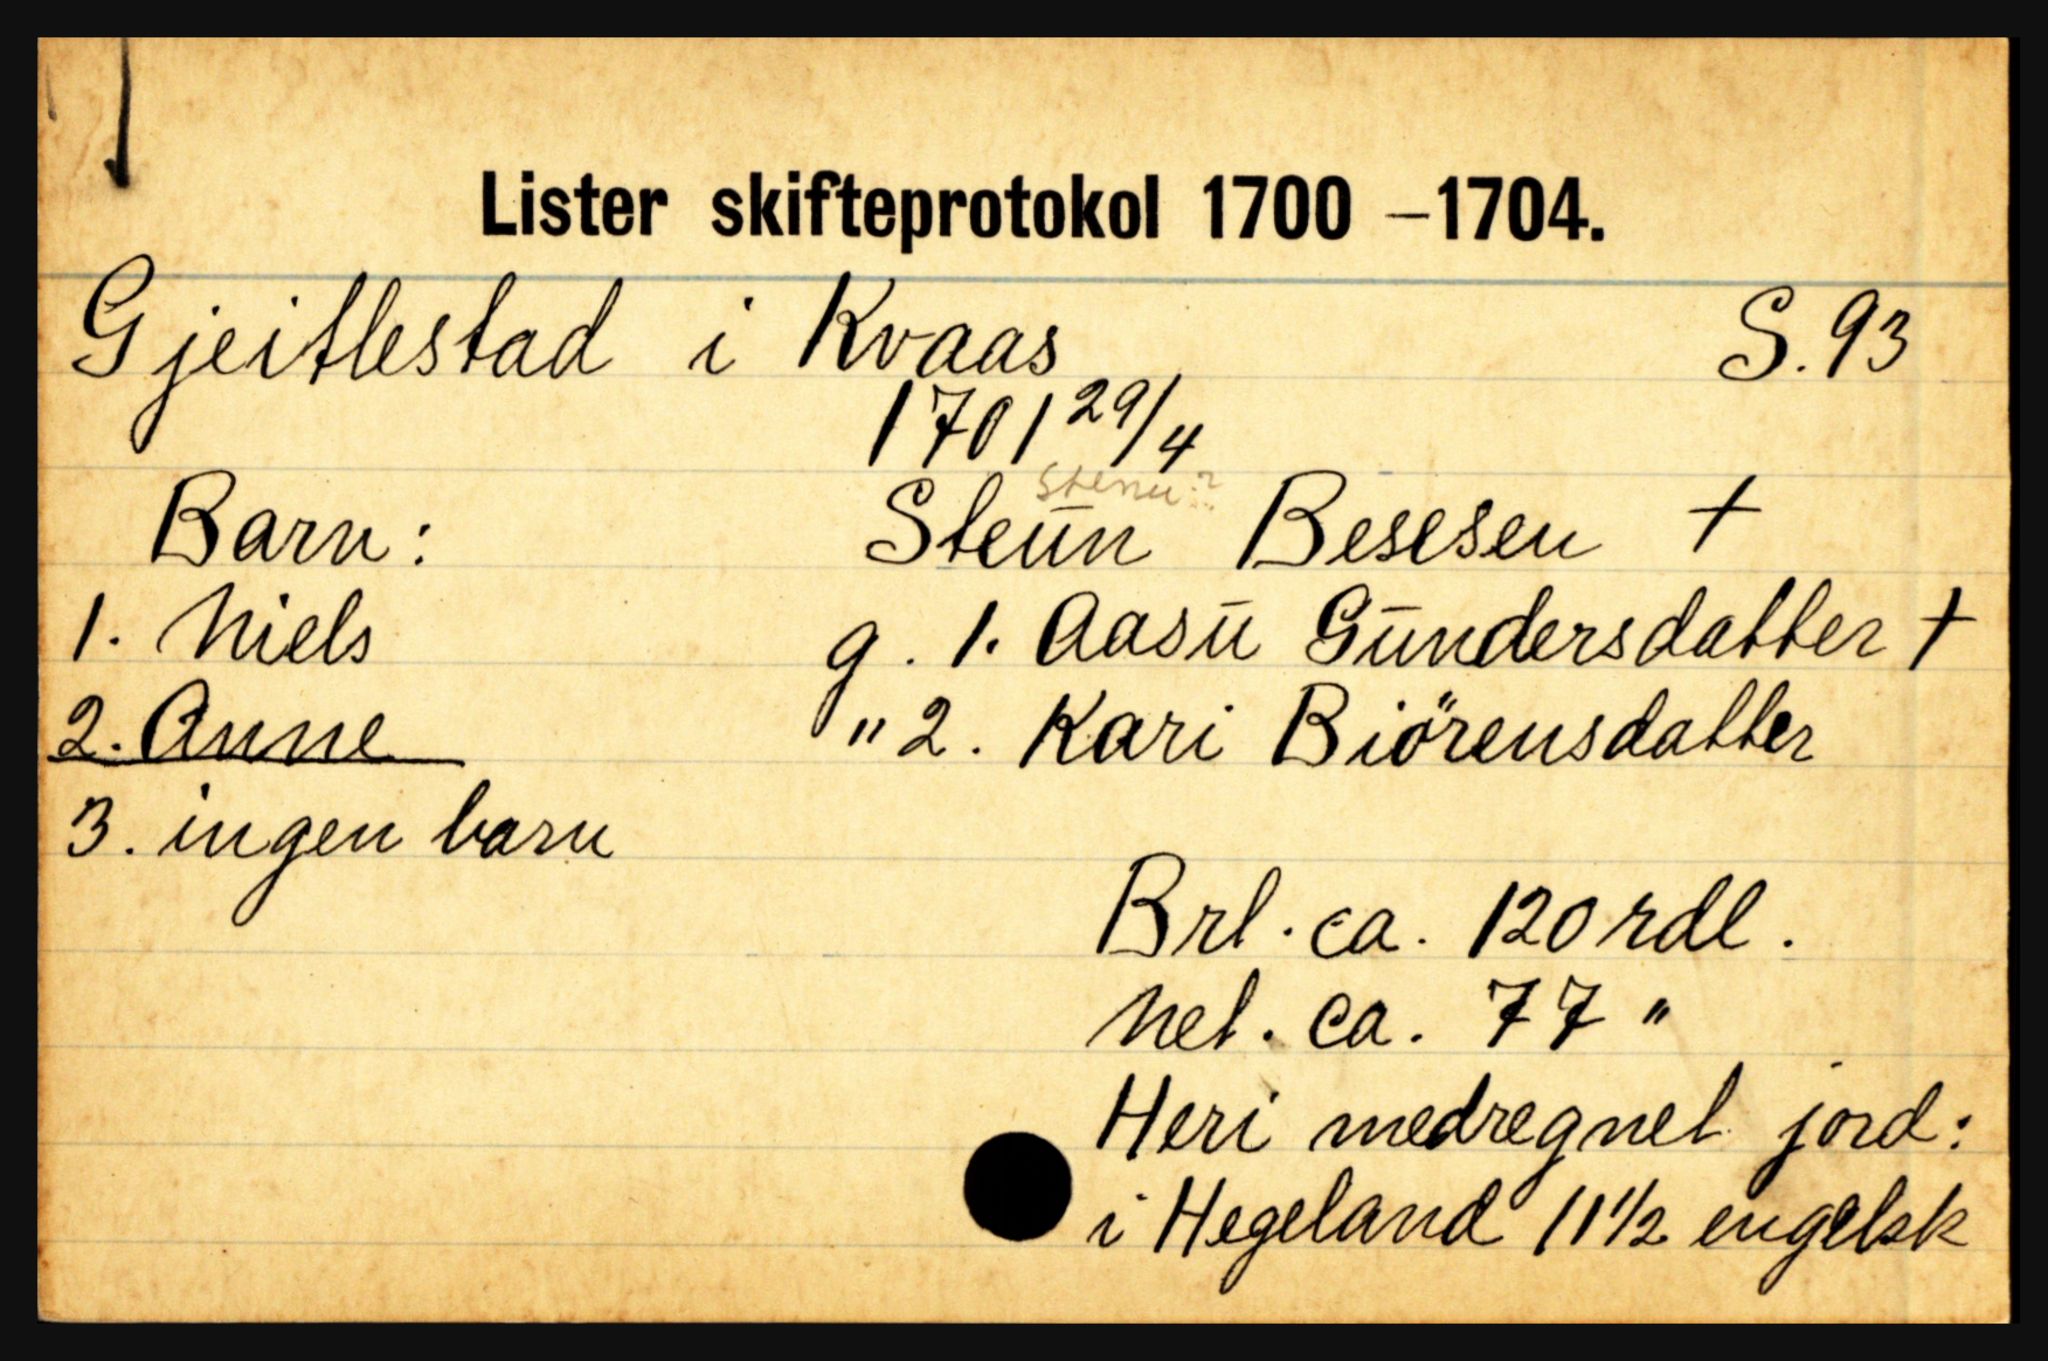 Lister skifteprotokol 1700 –1704.
Gjeitlestad i Kvaas S. 93
1701 29/4
Stenu?
Barn: Steūn Besesen †
1. Niels g. 1. Aasū Gūndersdatter †
2. Anne " 2. Kari Biörensdatter
3. ingen barn
Brt. ca. 120 rdl.
Net. ca. 77 "
Heri medregnet jord:
i Hegeland 11 1/2 engelsk